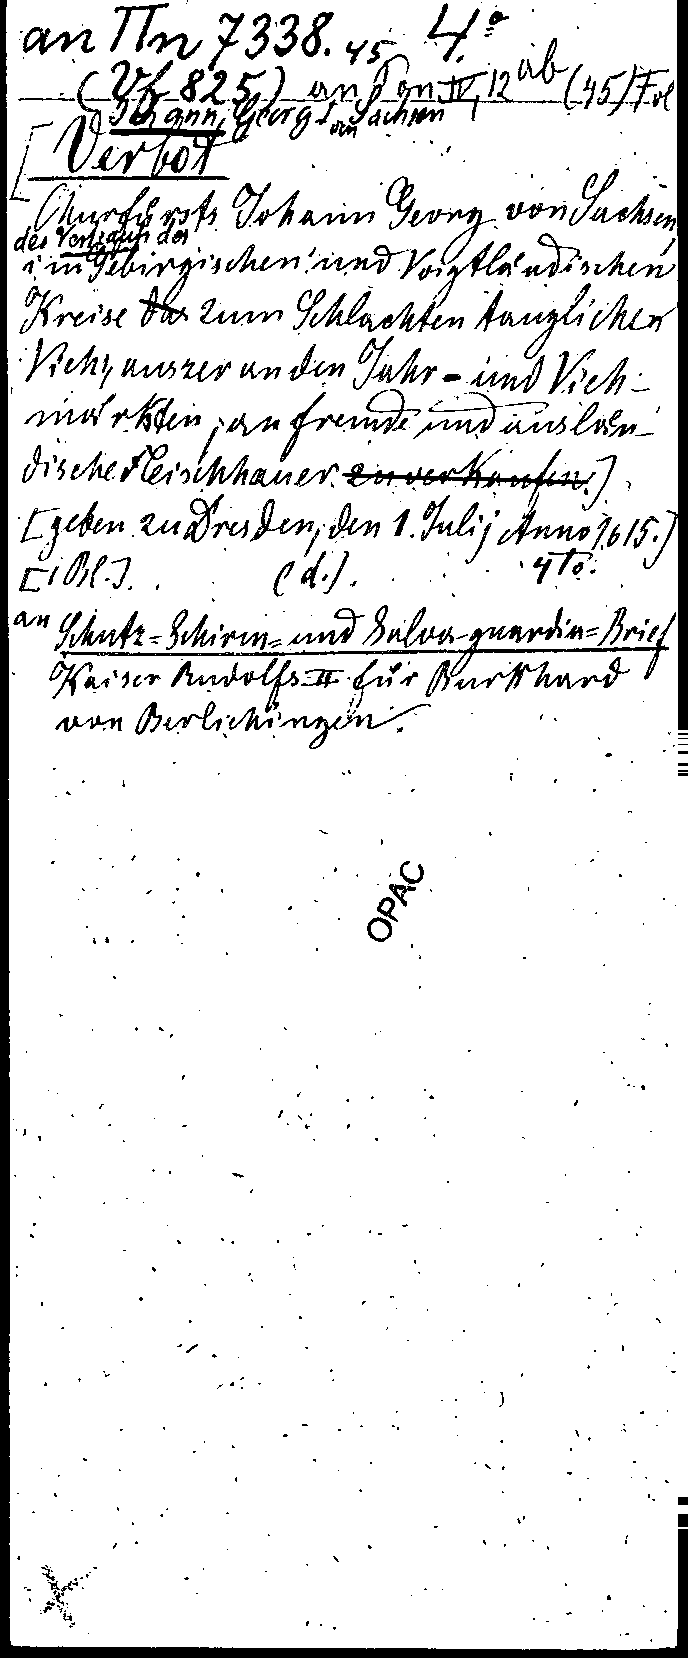 an IIn 7338. 45 4.º
(Vf 825) an Pon IV, 12 ab (45) Fol
Johann Georg I von Sachsen
[Verbot
Churfürsts Johann Georg von Sachsen,
des Verkaufs des
i im Gebirgischen und Voigtländischen
Kreise das zum Schlachten tauglichen
Vieh, auszer an den Jahr- und Vieh-
märkten, an fremde und auslän-
dische Fleischhauer zu verkaufen.]
[geben zu Dresden, den 1. Julij Anno 1615.]
[1 Bl.]. (d.). 4To.
an Schutz=Schirm= und Salva guardia=Brief
Kaiser Rudolfs II für Burkhard
von Berlichingen.
OPAC